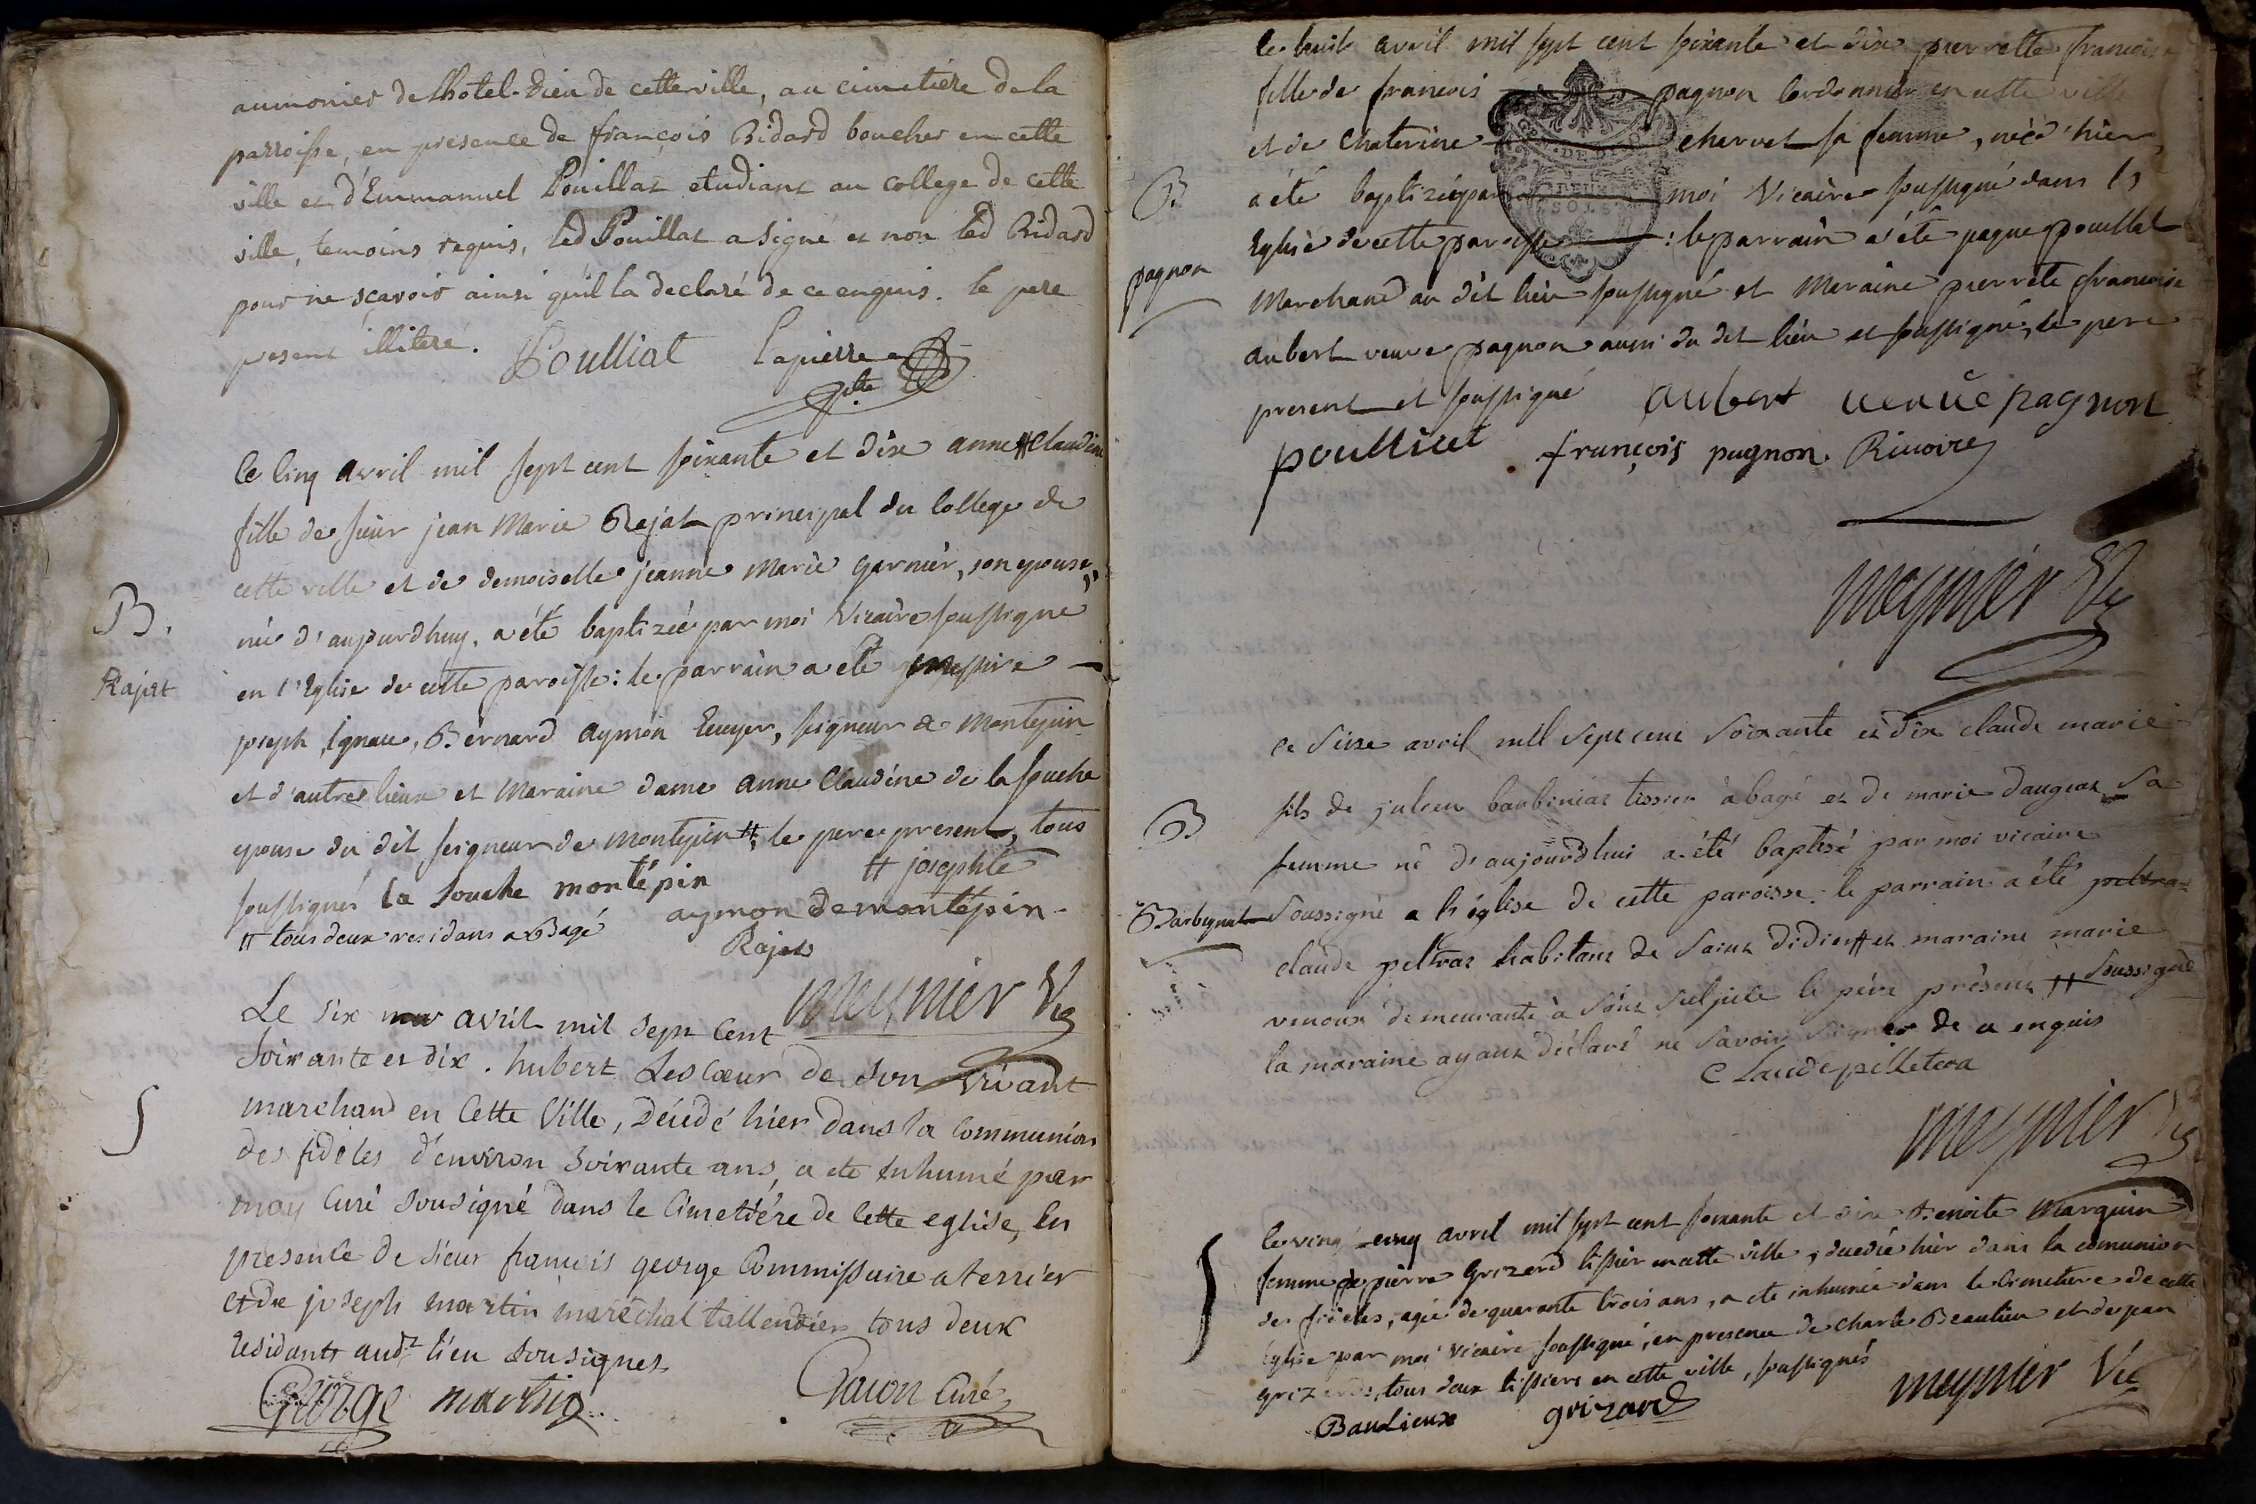 aumonier de lhotel-Dieu de cette ville, au cimetiére de la
parroisse, en presence de françois Bidard boucher en cette
ville et d'Emmanuel Pouillat etudiant au college de cette
ville, temoins requis, led Pouillat a signé et non led Bidard
pour ne sçavoir ainsi quil la declaré de ce enquis. le pere
present illiteré.
Poulliat Lapierre
ptre
Le Cinq avril mil sept cent soixante et dix anne # Claudine
fille de sieur jean Marie Rajat principal du College de
cette ville et de demoiselle jeanne Marie garnier, son epouse,
née d'aujourdhuy, a été baptizée par moi Vicaire soussigné
B.
Rajat
en l'Eglise de cette paroisse: le parrain a eté messire
joseph, Ignace, Bernard aymon Ecuyer, seigneur de Montepin
et d'autres lieux et Maraine dame anne Claudine de la souche
epouse du dit seigneur de montepin #, le pere present, tous
soussignés la Souche montépin
# josephte
# tous deux residans a Bagé
aymon de montépin
Rajat
meynier Vic
Le six avril mil sept Cent
Soixante et dix. hubert Lescœur de son vivant
S
marchand en Cette Ville, Décedé hier dans la Communion
des fideles d'environ soixante ans, a eté Inhumé par
moy Curé sousigné dans le Cimetiére de Cette eglise, En
presence de sieur francois george Commissaire a terrier
et de joseph martin maréchal tallendier tous deux
residants audt lieu sousignes
George martin
Curé
le huit avril mil sept cent soixante et dix pierrette francoise
fille de francois pagnon Cordonnier en cette ville
et de Chaterine charvet sa femme, née d'hier,
B
a été baptizée par moi Vicaire soussigné dans l'
Eglise de cette paroisse : le parrain a été pouillat
pagnon
Marchand au dit lieu soussigné et Maraine pierrete francoise
aubert veuve pagnon aussi du dit lieu et soussigné, le pere
present et soussigné aubert veuve pagnon
poulliat françois pagnon Rivoire
DEUX SOLS
meynier Vic
le seize avril mil sept cent soixante et dix claude marie
fils de julien tissier à bagé et de marie daugeat sa
B
femme né d'aujourdhui a été baptisé par moi vicaire
Barbignat
soussigné a l'église de cette paroisse. le parrain a été
claude peltrat habitant de saint didier # et maraine marie
demeurante à le pére présent # soussigné
la maraine ayant déclaré ne savoir signer de ce enquis
Claude pilletera
meynier Vic
le vingt-cinq avril mil sept cent soixante et dix Benoite Marguin
S
femme de pierre Grizard tissier en cette ville, decedée hier dans la comunion
des fideles, agée de quarante trois ans, a ete inhumée dans le Cimetiere de cette
Eglise par moi Vicaire soussigné, en presence de Charle Beaulieu et de jean
grizard, tous deux tissiers en cette ville, soussignés
Baulieux grizard
meynier Vic